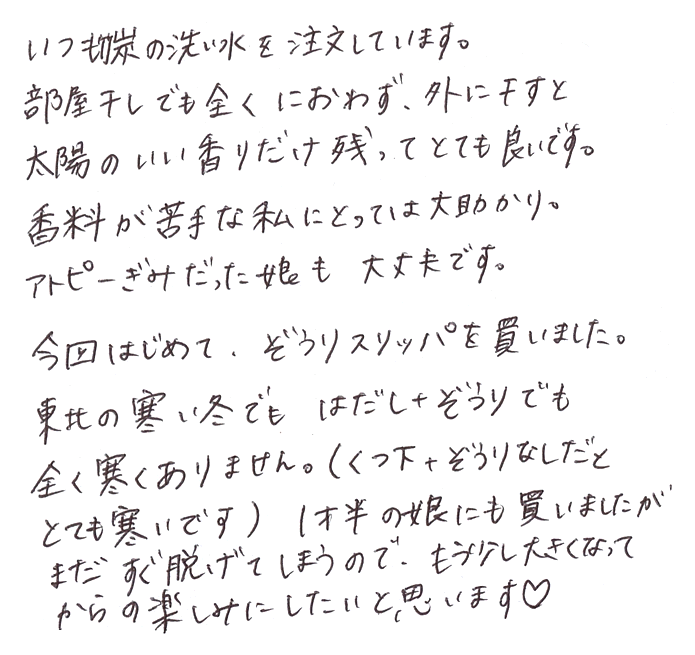 いつも炭の洗い水を注文しています。
部屋干しでも全くにおわず、外に干すと
太陽のいい香りだけ残ってとても良いです。
香料が苦手な私にとっては大助かり。
アトピーぎみだった娘も 大丈夫です。
今回はじめて、ぞうりスリッパを買いました。
東北の寒い冬でも はだし+ぞうりでも
全く寒くありません。(くつ下+ぞうりなしだと
とても寒いです) 1才半の娘にも買いましたが
まだすぐ脱げてしまうので、もう少し大きくなって
からの楽しみにしたいと思います♡